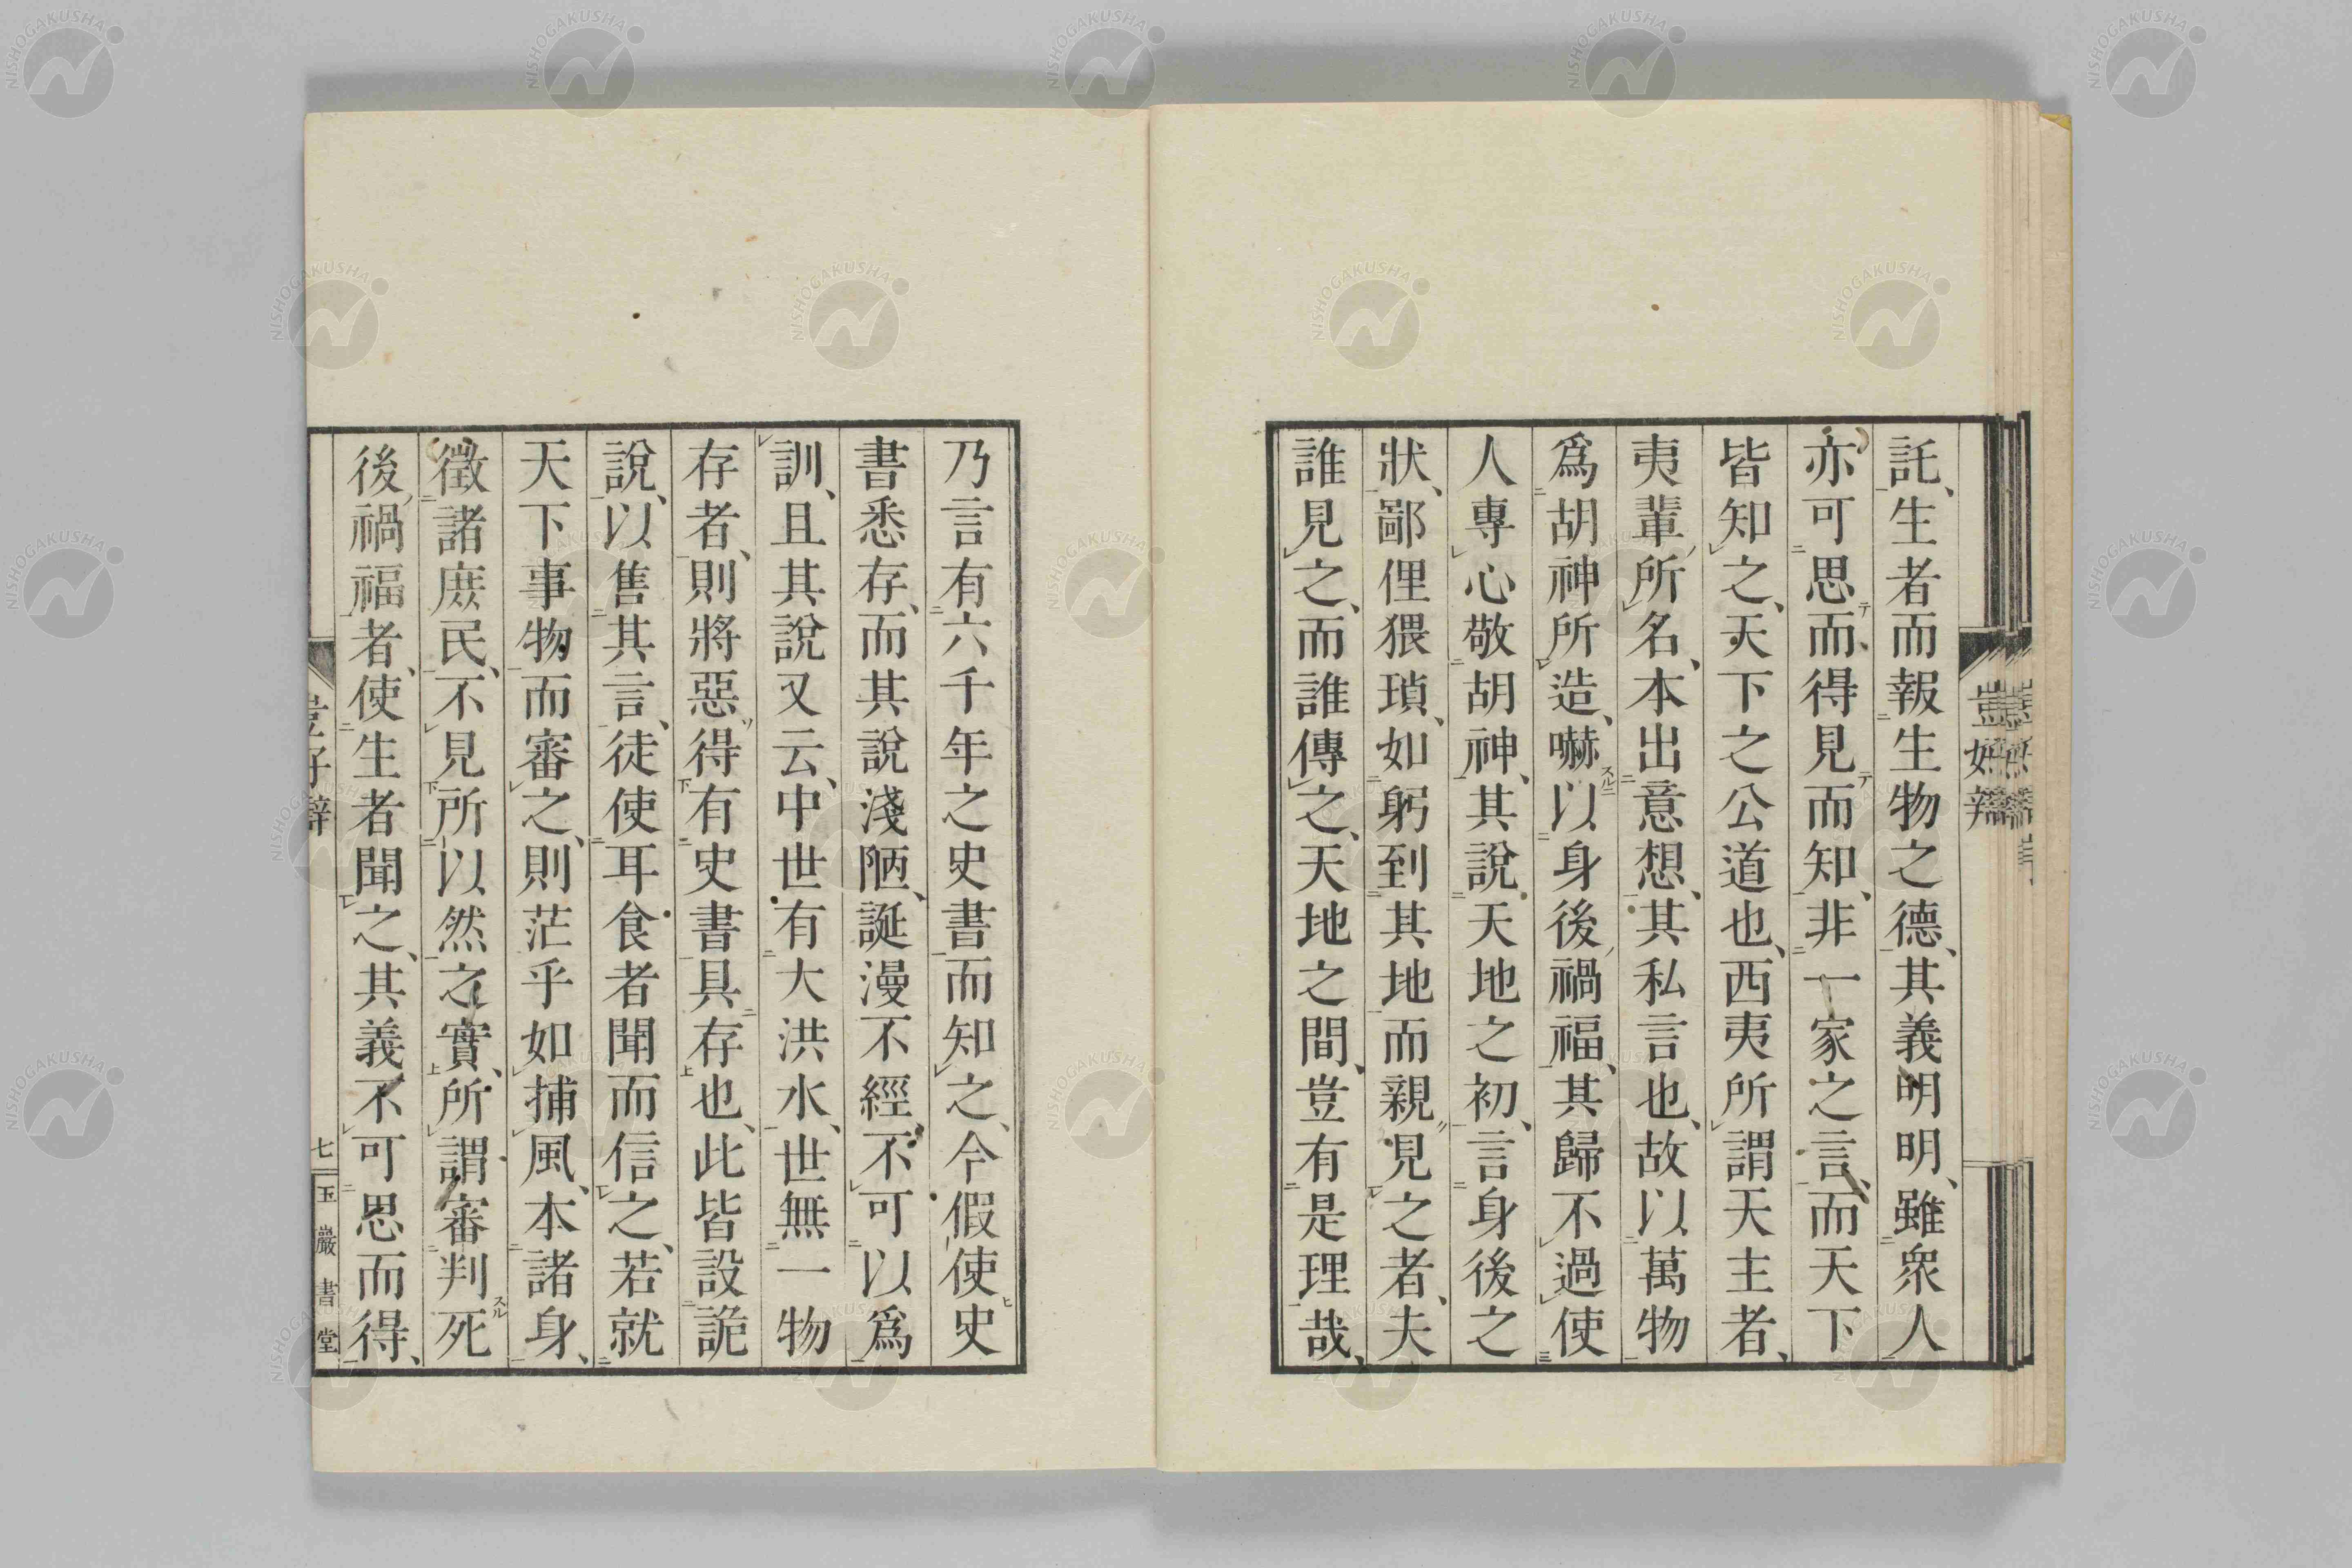 託、生者而報生物之德、其義明明、雖衆人
亦可思而得見而知、非一家之言、而天下
皆知之、天下之公道也、西夷所謂天主者、
夷輩所名、本出意想、其私言也、故以萬物
爲胡神所造、嚇以身後禍福、其歸不過使
人專心敬胡神、其說天地之初、言身後之
狀、鄙俚猥瑣、如躬到其地而親見之者、夫
誰見之、而誰傳之、天地之間、豈有是理哉、
乃言有六千年之史書而知之、今假使史
書悉存、而其說淺陋、誕漫不經、不可以爲
訓、且其說又云、中世有大洪水、世無一物
存者、則將惡得有史書具存也、此皆設詭
說、以售其言、徒使耳食者聞而信之、若就
天下事物而審之、則茫乎如捕風、本諸身、
徵諸庶民、不見所以然之實、所謂審判死
後禍福者、使生者聞之、其義不可思而得、
七
玉巖書堂
NISHOGAKUSHA